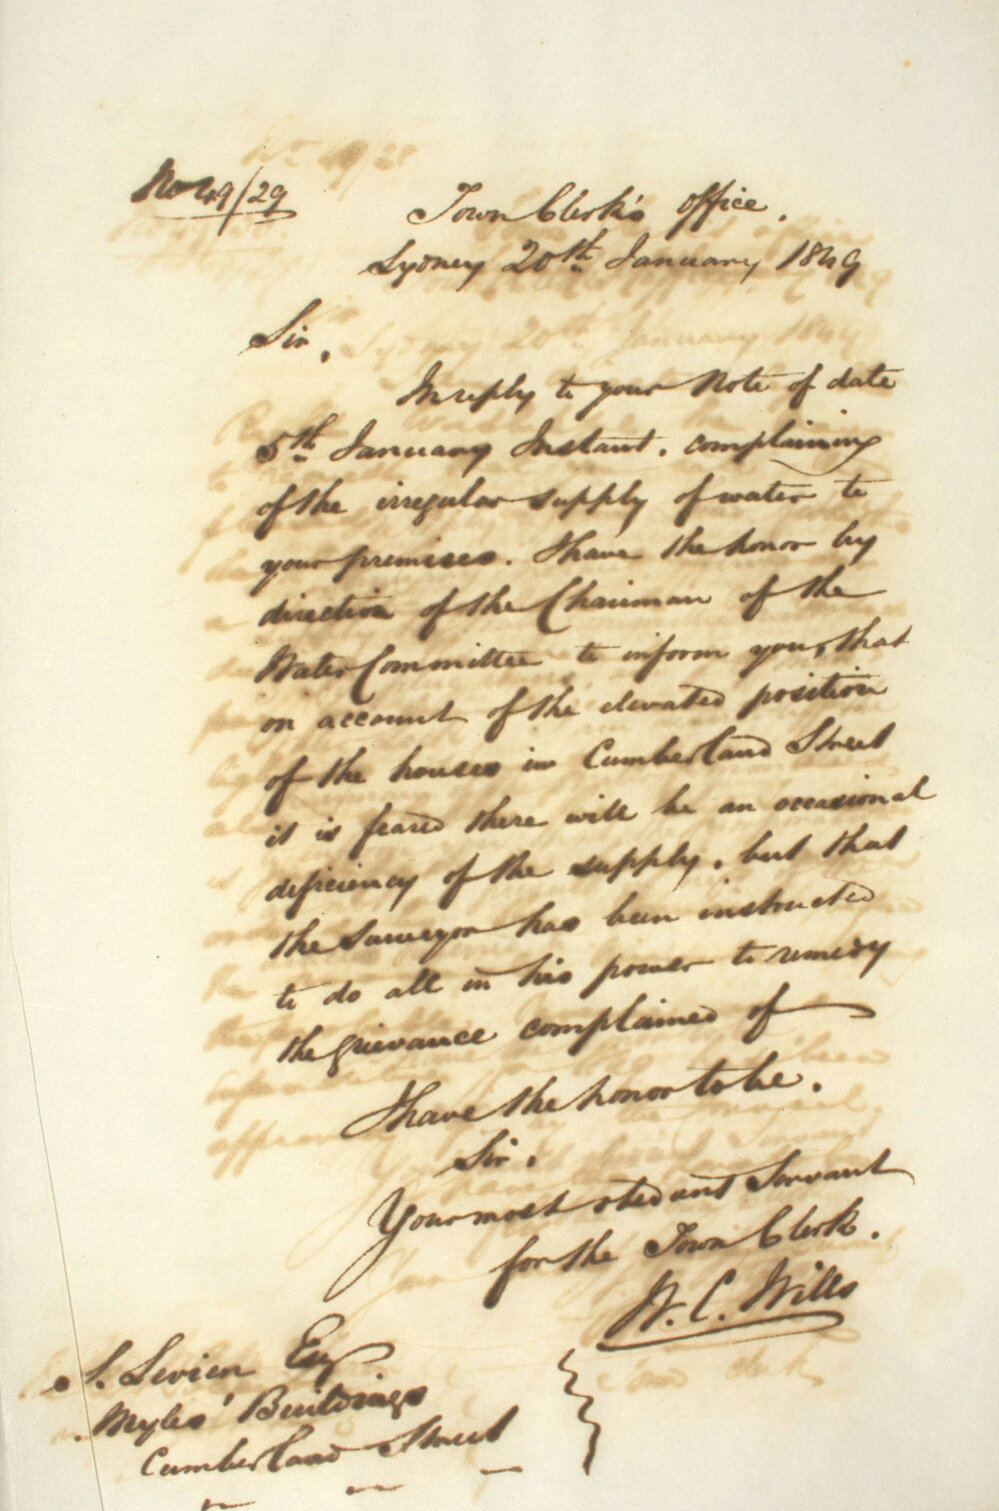 No 49/29
Town Clerk's Office.
Sydney 20th January 1849
Sir,
In reply to your Note of date
5th January Instant. complaining
of the irregular supply of water to
your premises. I have the honor by
direction of the Chairman of the
Water Committee to inform you, that
on account of the elevated position
of the houses in Cumberland Street
it is feared there will be an occasional
deficiency of the supply, but that
the Surveyor has been instructed
to do all in his power to remedy
the grievance complained of
I have the honor to be.
Sir,
Your most obedient Servant
for the Town Clerk.
W. C. Wills
S. Levien Esq
Myles' Buildings
Cumberland Street